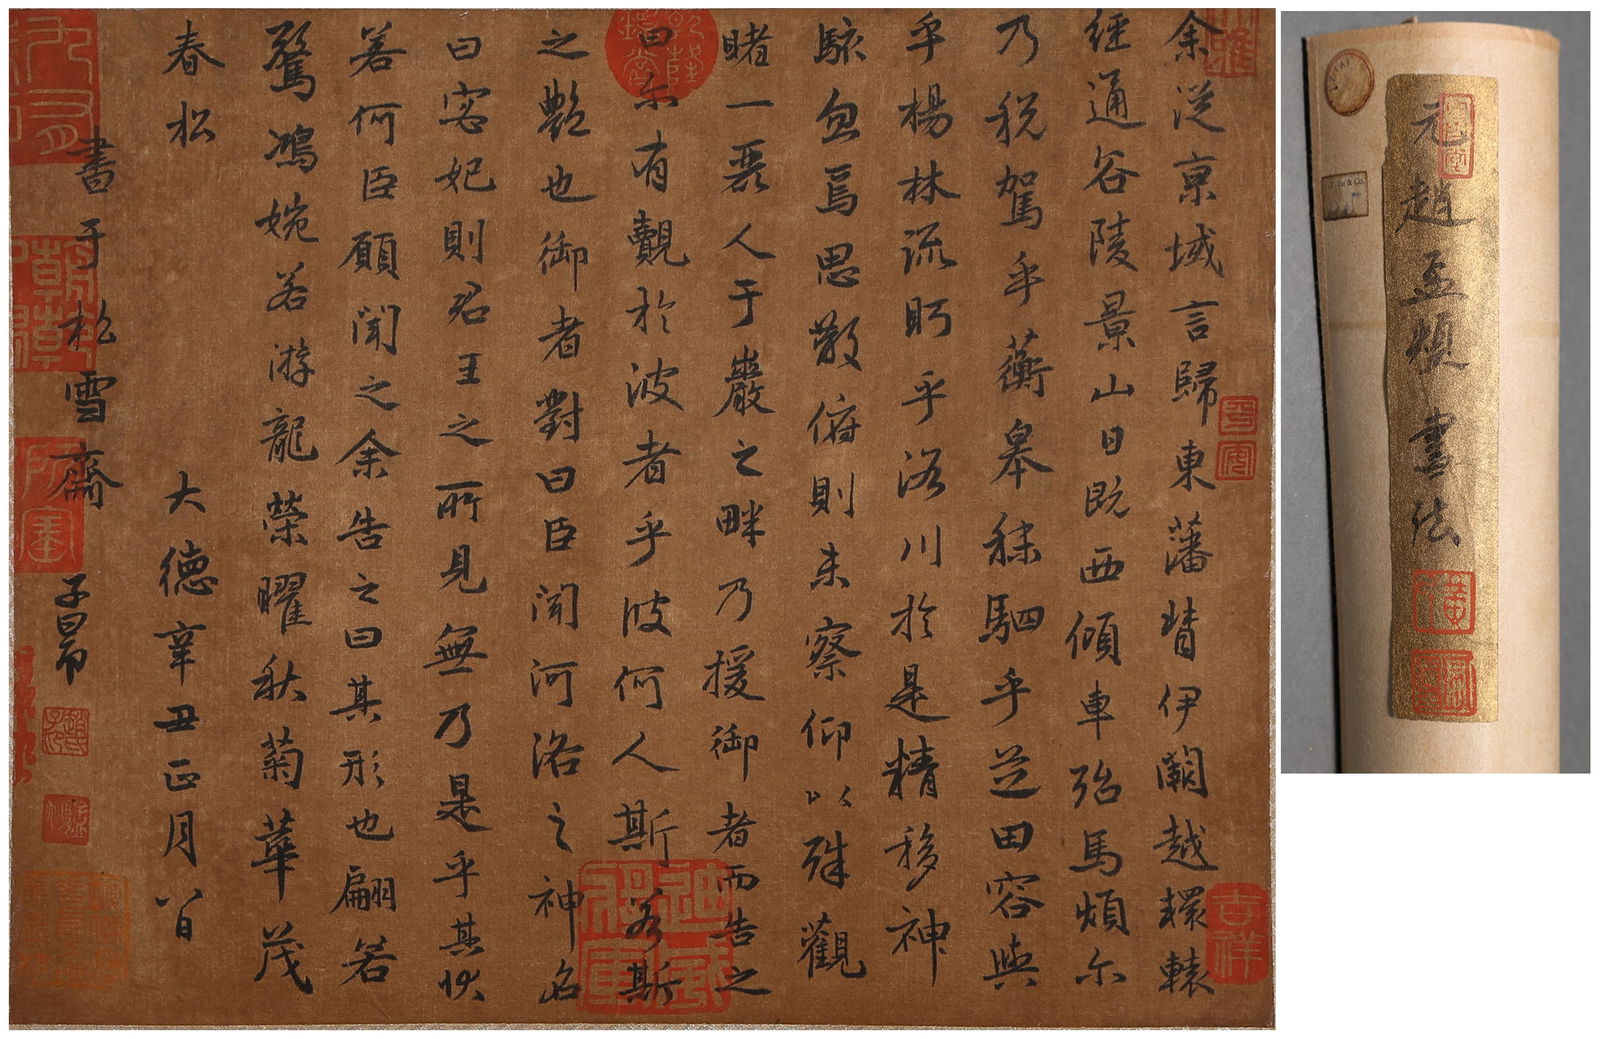 余從京域言歸東藩背伊闕越轘轅
經通谷陵景山日既西傾車殆馬煩尓
乃税駕乎蘅皋秣駟乎芝田容與
乎楊林流眄乎洛川於是精移神
駭忽焉思散俯則未察仰以殊觀
睹一麗人于巖之畔乃援御者而告之
曰尓有覿於彼者乎彼何人斯若斯
之艷也御者對曰臣聞河洛之神名
曰宓妃則君王之所見無乃是乎其狀
若何臣願聞之余告之曰其形也翩若
驚鴻婉若游龍榮曜秋菊華茂
春松
大德辛丑正月八日
書于松雪齋
子昂
吉祥
元趙孟頫書法